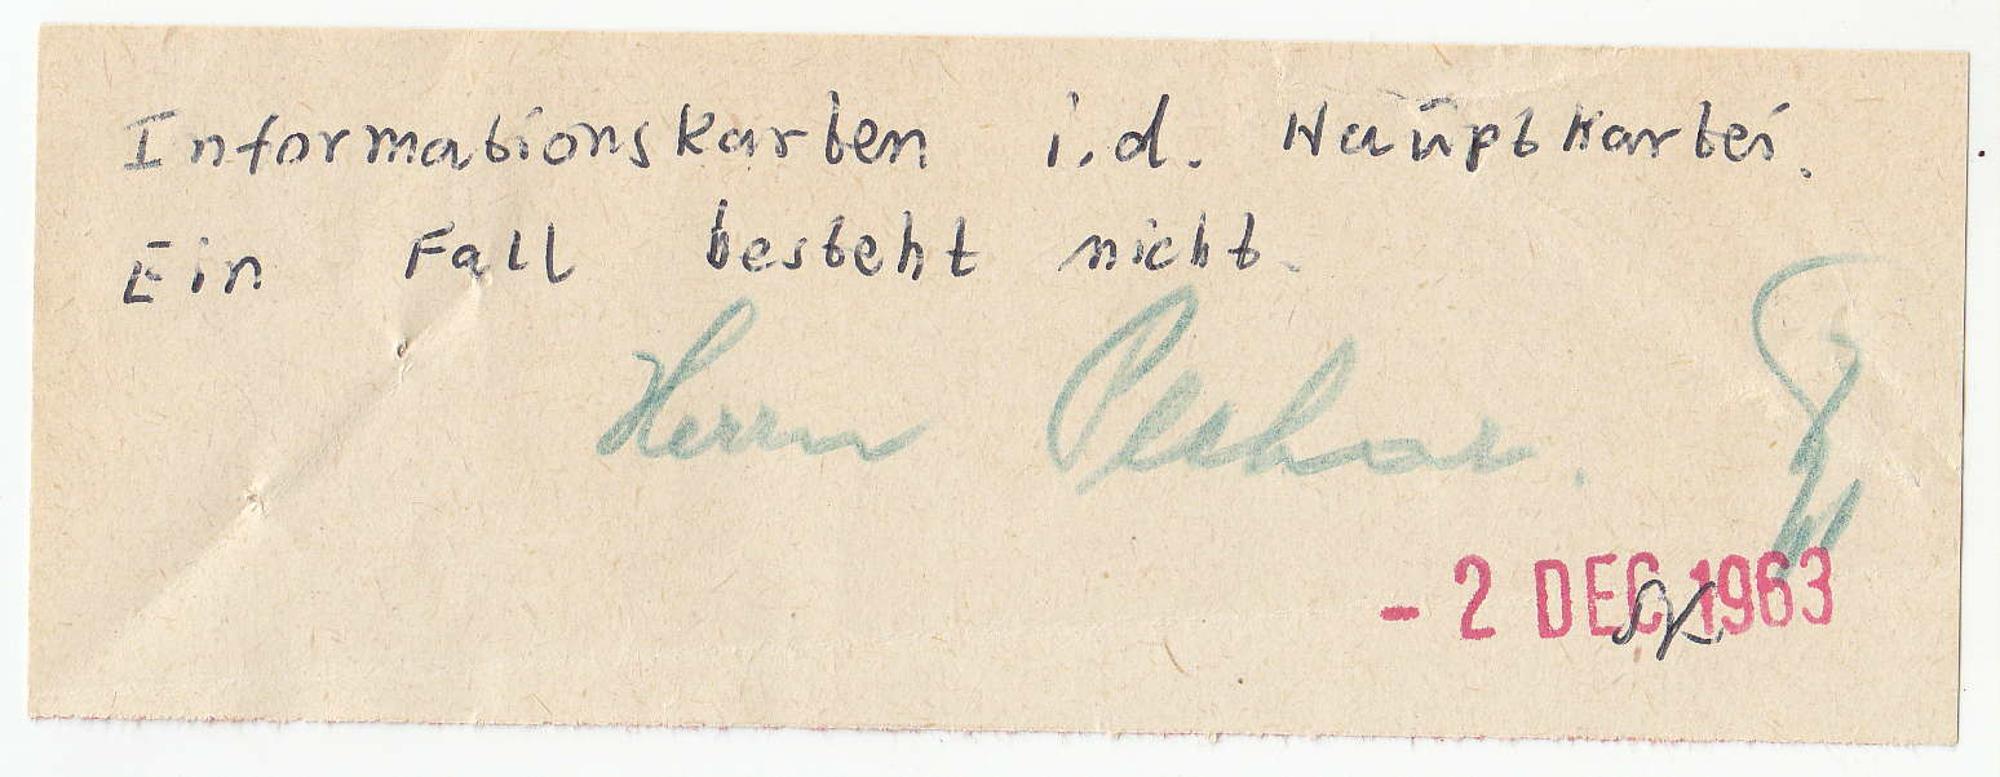 Informationskarten i.d. Hauptkartei.
Ein Fall besteht nicht.
Herrn
- 2 DEC 1963